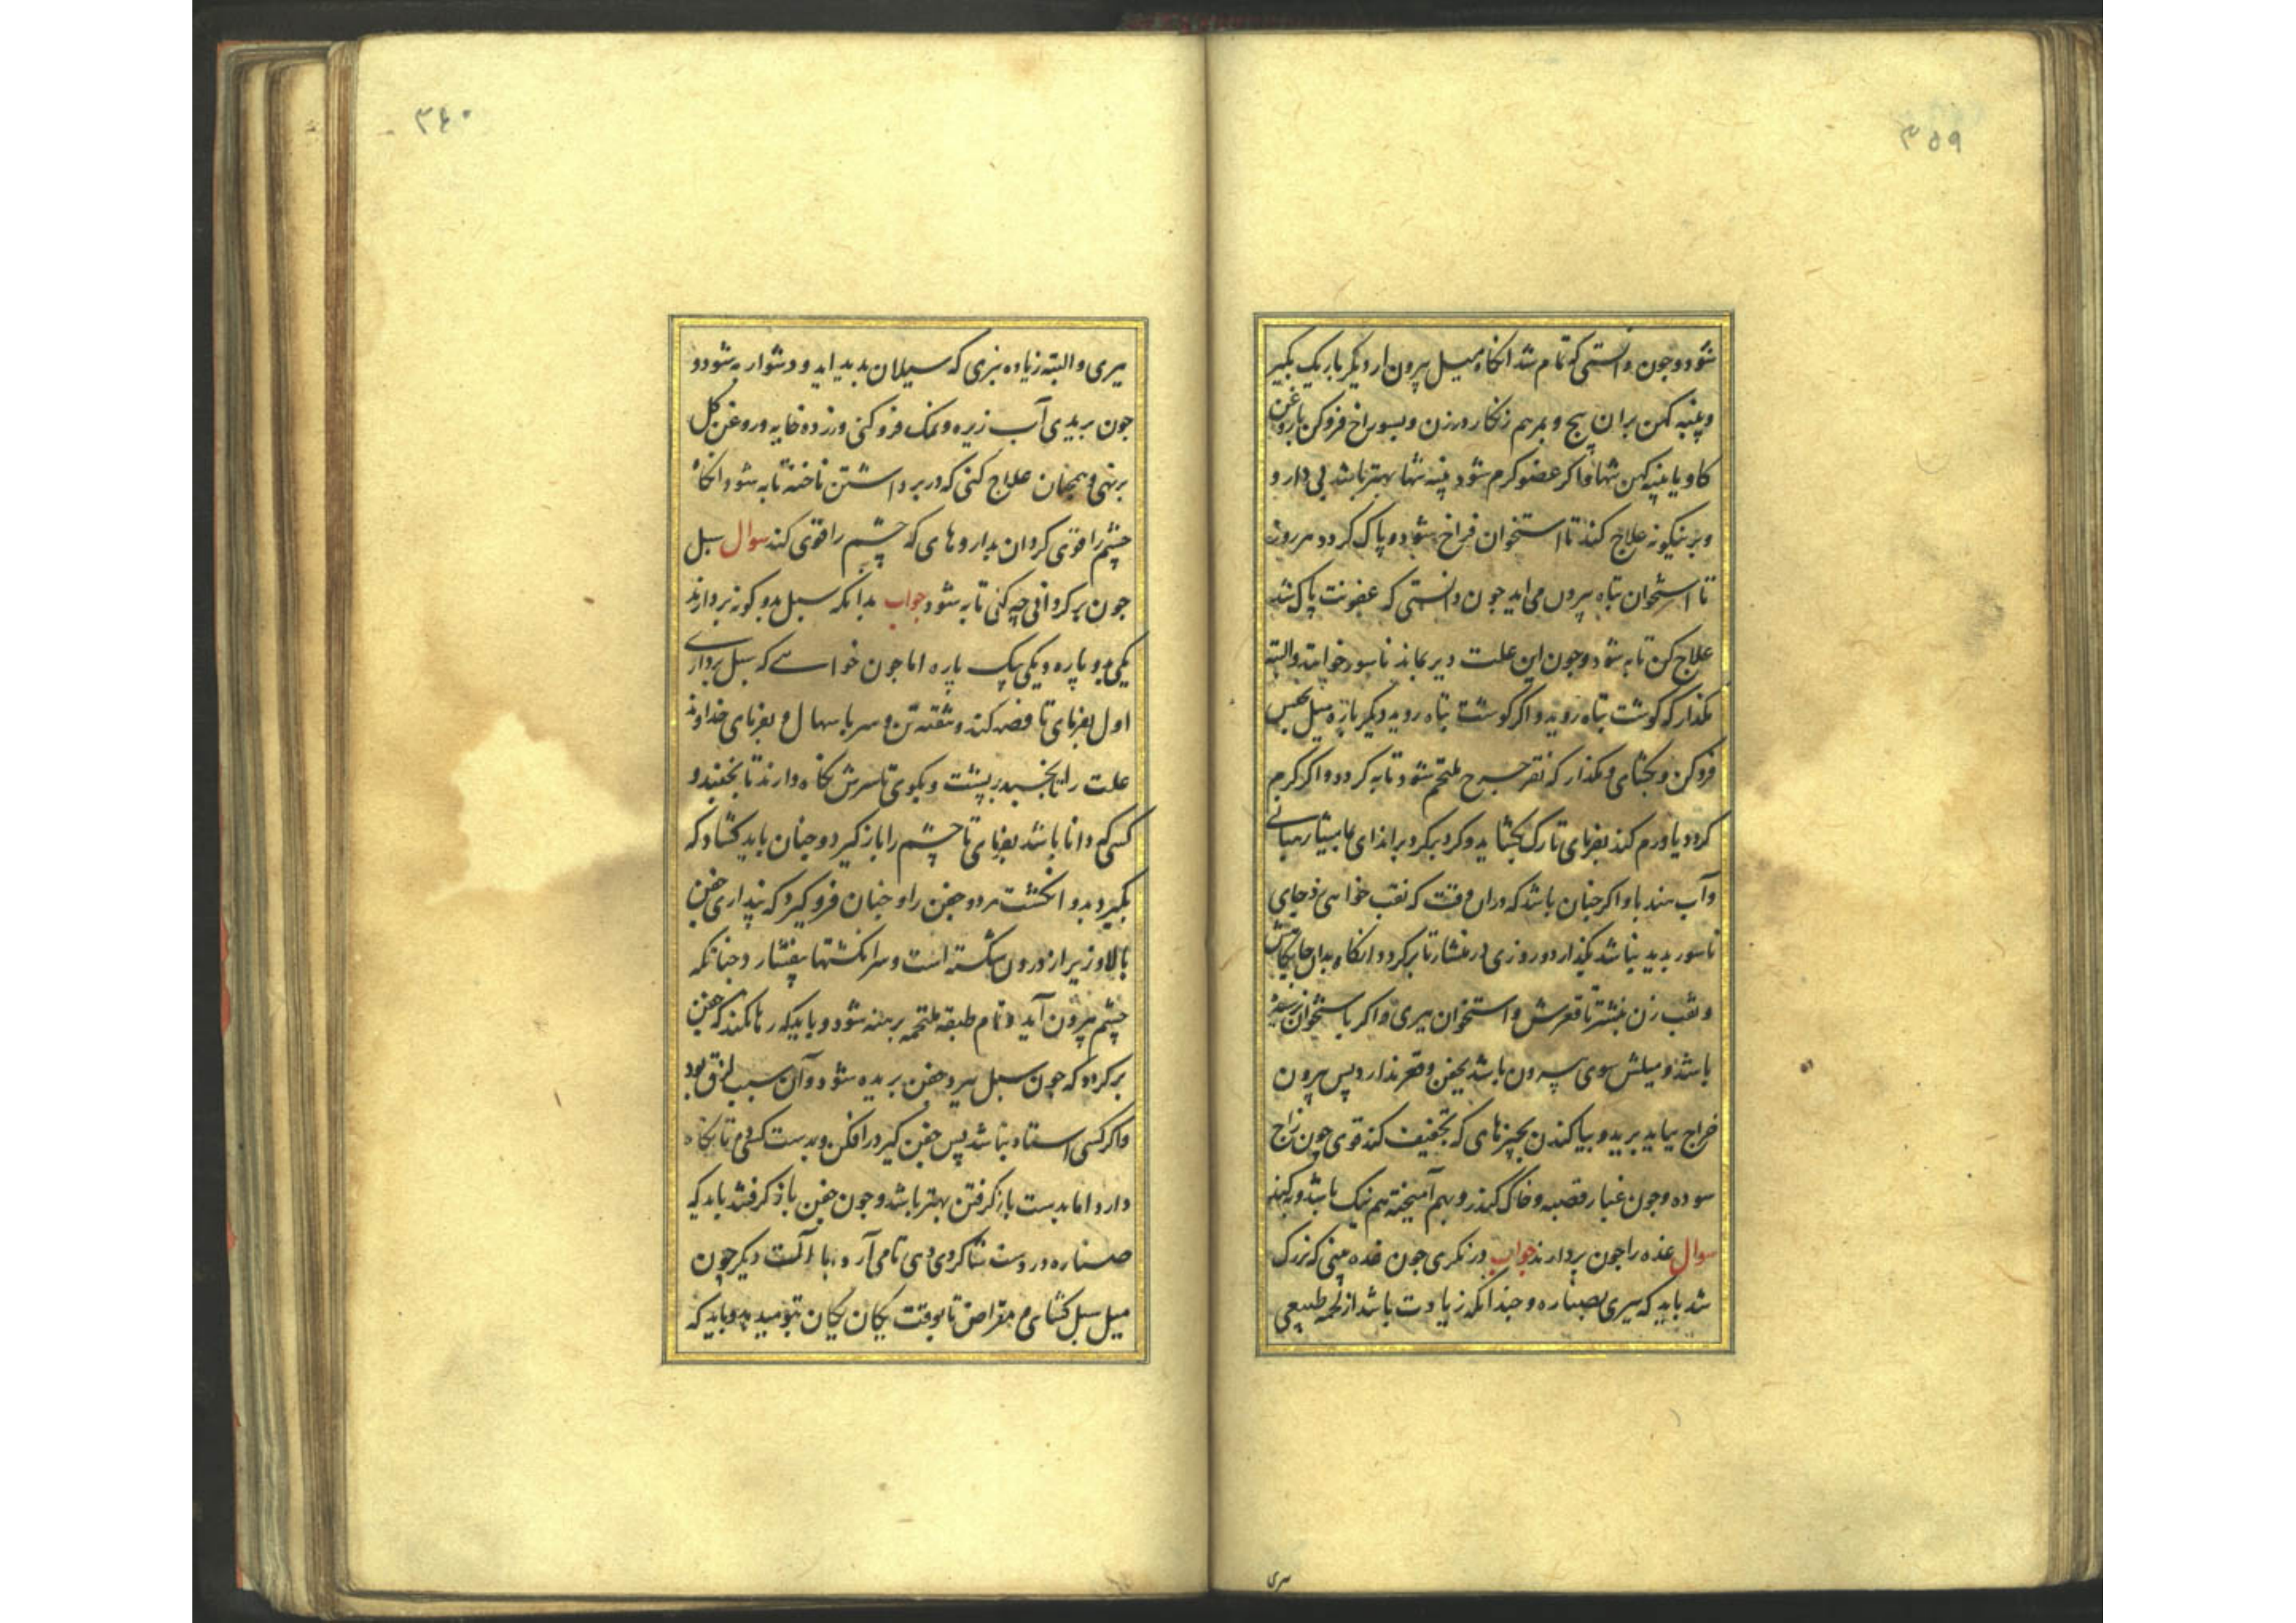 ۳۵۹
شود و چون دانستی که تمام شد انکاه میل بیرون ار دیکر باریک بکیر
و پنبه کهن بران پیچ و بمرهم زنکار درزن و بسوراخ فروکن با روغن
کاو یا پنبه کهن تنها و اکر عضو کرم شود پنبه تنها بهتر باشد بی دارو
و برینکونه علاج کند تا استخوان فراخ شود و پاک کردد هر روز
تا استخوان تباه بیرون می اید چون دانستی که عفونت پاک شد
علاج کن تا به شود و چون این علت دیر بماند ناسور خوانند و البته
مکذار که کوشت تباه روید و اکر کوشت تباه روید دیکر باره میل
فروکن و بکشای و مکذار که نقر جرح ملتحم شود تا به کردد و اکر کرم
کردد یا ورم کند بفرمای تا رک بکشاید و کرد برکرد براندای
و آب هندبا و اکر چنان باشد که دران وقت که نقب خواهی زد جای
ناسور بدید نباشد بکذار دو روزی تا برکردد انکاه بدان جایکاهش
و نقب زن بنشتر تا قعرش و استخوان ببری و اکر باستخوان نرسیده
باشد و میلش سوی بیرون باشد بجفن و قعر ندارد پس بیرون
خراج بباید برید و بیاکندن بچیزهای که تجفیف کند قوی چون زاج
سوده و چون غبار قصبه و خاک کندر و بهم آمیخته هم نیک باشد و به کند
سوال غده را چون بردارند جواب درنکری چون غده بینی که بزرک
شد باید که ببری بصناره و چندانکه زیادت باشد از لحمه طبیعی
بری
۳۶۰
ببری و البته زیاده نبری که سیلان بدید اید و دشوار به شود و
چون بریدی آب زیره و نمک فروکنی و زرده خایه و روغن کل
برنهی و همچنان علاج کنی که در برداشتن ناخنه تا به شود انکاه
چشم را قوی کردان بداروهای که چشم را قوی کند سوال سبل
چون برکردانی چه کنی تا به شود جواب بدانکه سبل بدو کونه بردارند
یکی بدو پاره و یکی بیک پاره اما چون خواهی که سبل برداری
اول بفرمای تا فصد کند و تنقیه تن و سر باسهال و بفرمای خداوند
علت را تا بخسبد برپشت و بکوی تا سرش نکاه دارند تا نجنبد و
کسی که دانا باشد بفرمای تا چشم را باز کیرد و چنان باید کشاد که
بکیرد بدو انکشت هر دو جفن را و چنان فروکیرد که پنداری جفن
بالا و زیر از درون شکسته است و سرانکشتها بیفشارد چنانکه
چشم بیرون آید و تمام طبقه ملتحمه برهنه شود و باید که رها نکند که جفن
برکردد که چون سبل ببرد جفن بریده شود و آن سبب لزق بود
و اکر کسی استاد نباشد پس جفن کیر درافکن و بدست کسی ده تا نکاه
دارد اما بدست باز کرفتن بهتر باشد و چون جفن باز کرفتند باید که
صناره در دست شاکردی دهی تا می آرد با آلت دیکر چون
میل سبل کشای و مقراض تا بوقت یکان یکان بتو میدهد و باید که